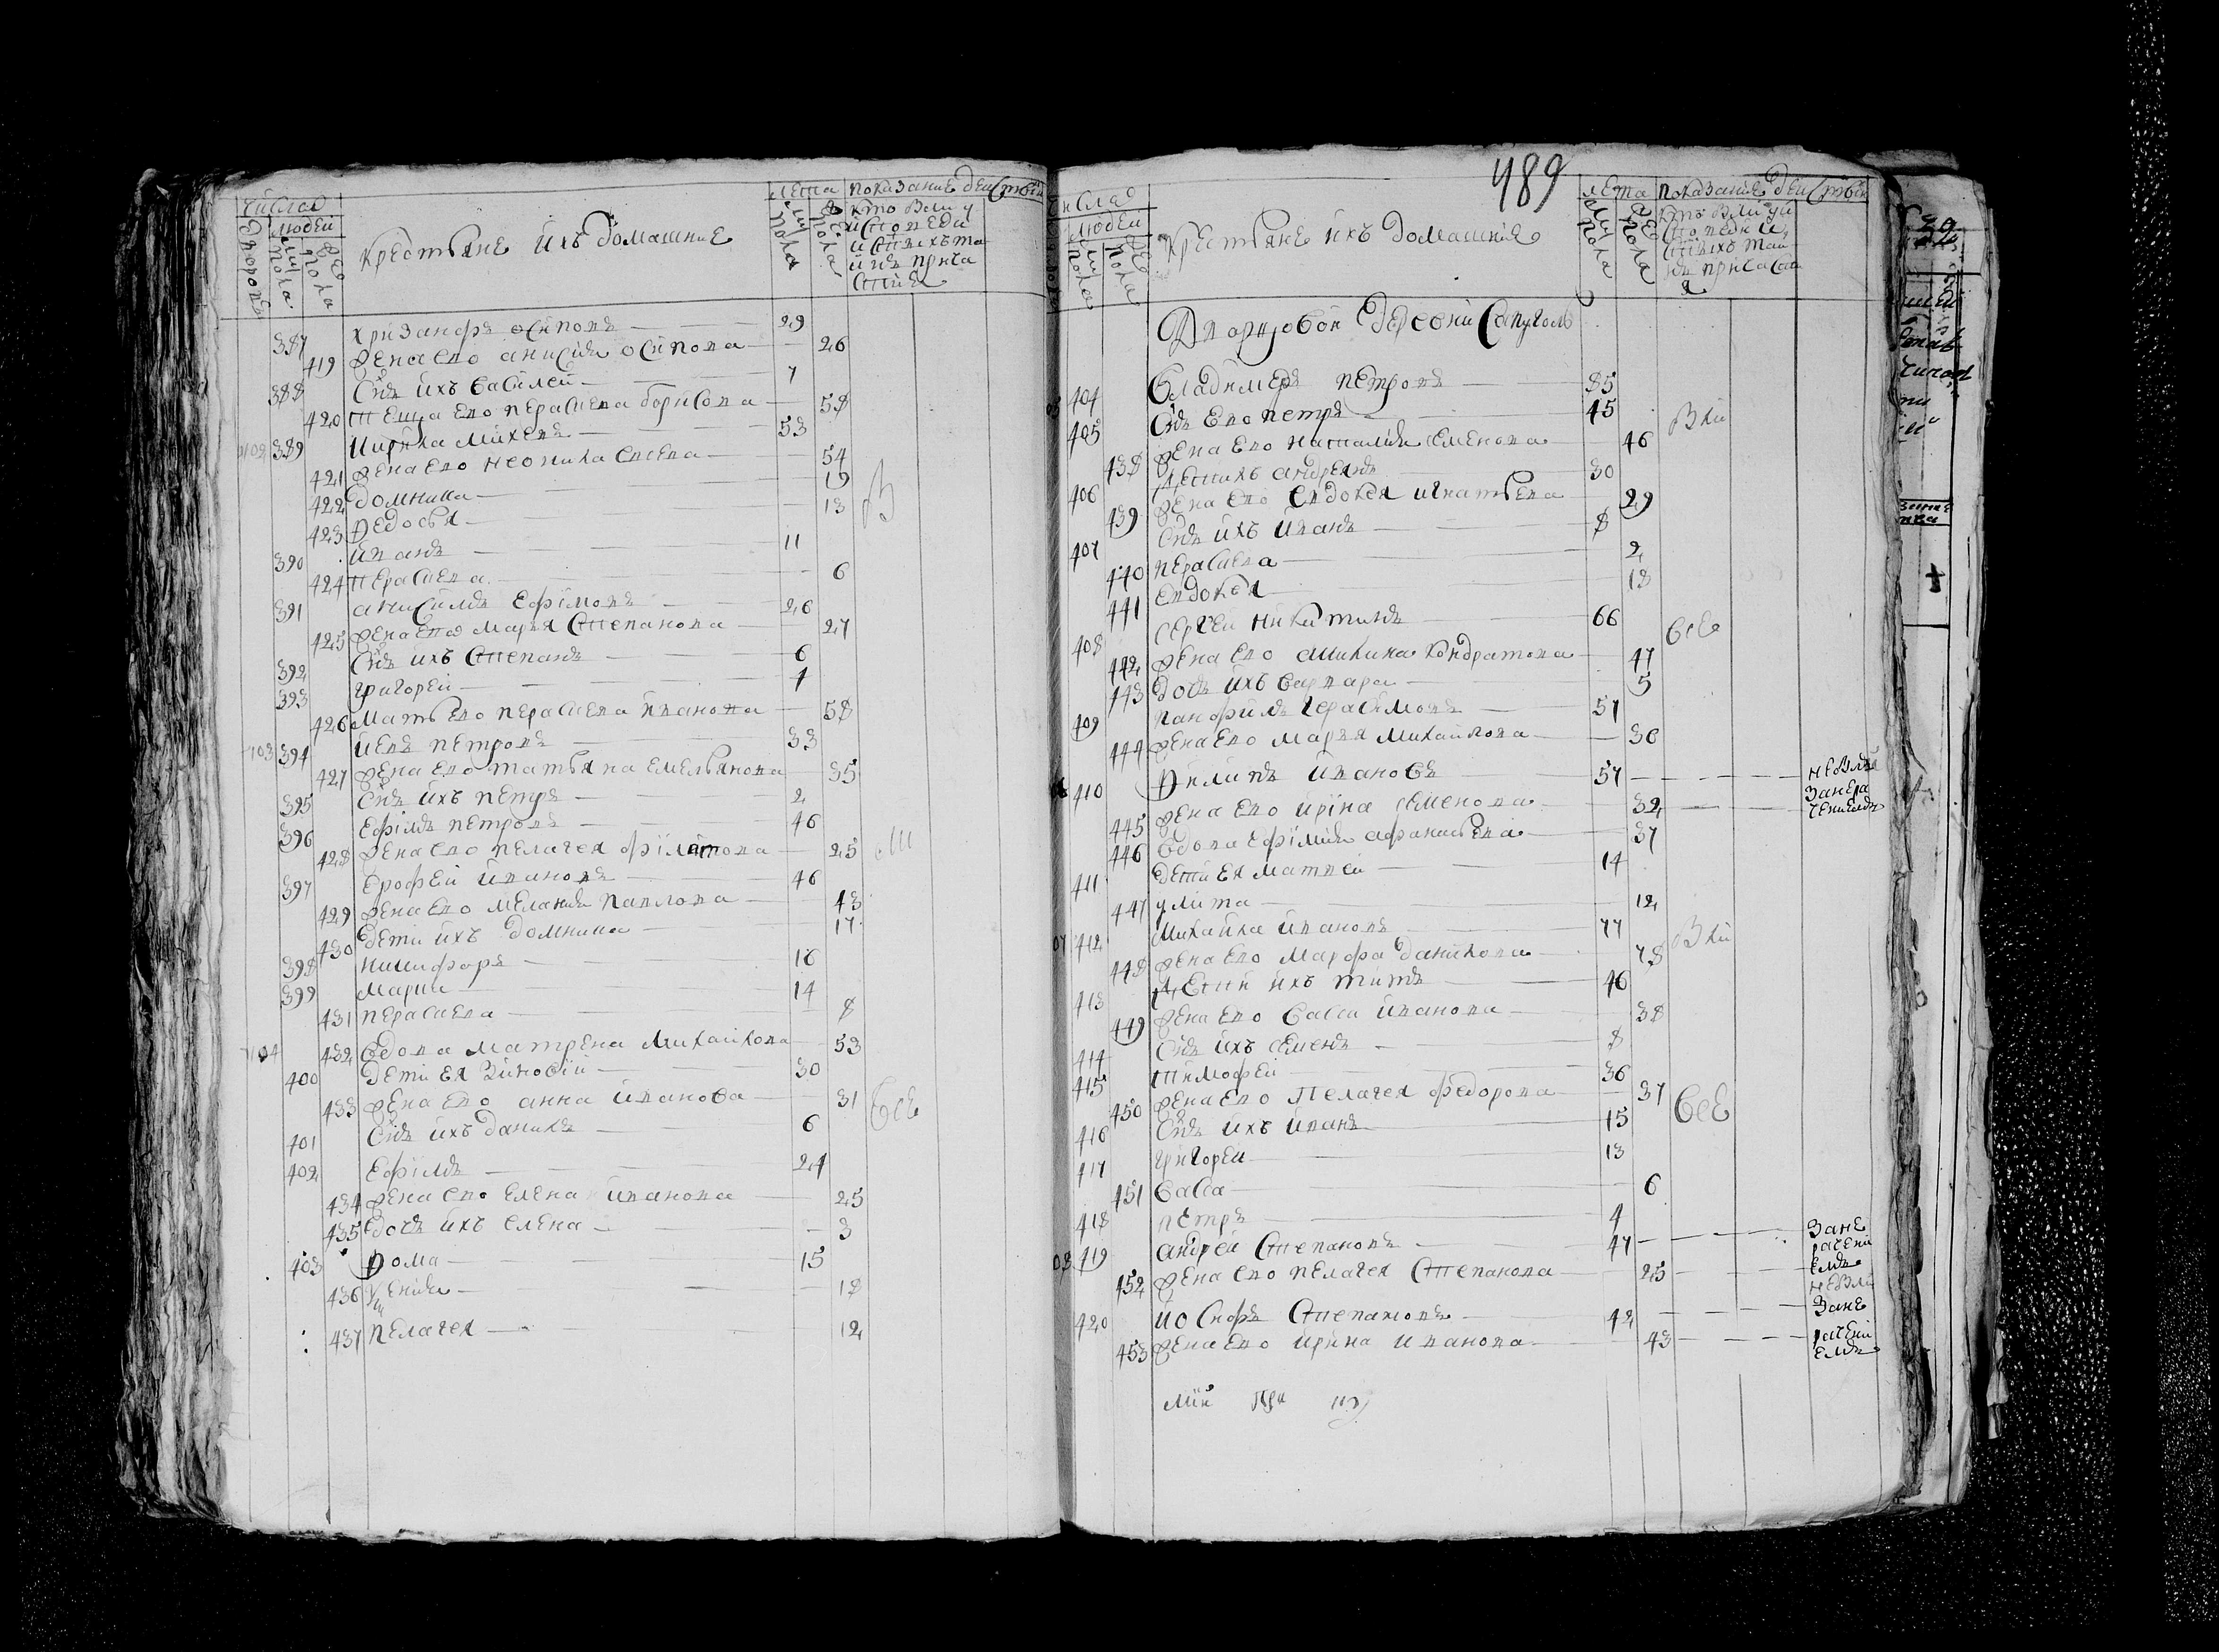 число
людей
дворовъ
муж пола
же пола
крестьяне ихъ домашние
лета
муж пола
же пола
показание действи
387 хрисанфъ осиповъ 29
419 жена ево анисия осипова 26
388 снъ ихъ василей 7
420 теща ево парасева борисова 58
102 389 михевъ 53
421 жена ево неонила евсева 54
422 домника 19
423 федосья 13
390 иванъ 11
424 парасева 6
391 анисимъ ефимовъ 26
425 жена ево марья степанова 27
392 снъ ихъ степанъ 6
393 григорей 1
426 мать ево парасева иванова 58
103 394 иевъ петровъ 33
427 жена ево татьяна емельянова 35
395 снъ ихъ петръ 2
396 ефимъ петровъ 46
428 жена ево пелагея филатова 25
397 ерофей ивановъ 46
429 жена ево мелания павлова 43
430 дети ихъ домника 17
398 никифоръ 16
399 марки 14
431 парасева 8
104 432 вдова матрена михайлова 53
400 дети ея зиновий 30
433 жена ево анна иванова 31 все
401 снъ ихъ данила 6
402 ефимъ 24
434 жена ево елена иванова 25
435 дочь ихъ елена 3
403 фома 15
436 ксения 18
437 пелагея 12
489
число
людей
муж пола
же пола
крестьяне ихъ домашние
лета
муж пола
же пола
показание действи
Дворцовой деревни
404 владимеръ петровъ 85
405 снъ ево петръ 45
438 жена ево наталия семенова 46
406 андреянъ 30
439 жена ево евдокея игнатьева 29
407 снъ ихъ иванъ 8
440 парасева 2
441 евдокея 18
408 сергей никитинъ 66 все
442 жена ево акилина кондратова 47
443 дочь ихъ варвара 5
409 панфилъ герасимовъ 57
444 жена ево марья михайлова 36
410 филипъ ивановъ 57
445 жена ево ирина семенова 32
446 вдова ефимия афанасьева 37
411 дети ея матвей 14
447 улита 12
07 412 михайла ивановъ 77
448 жена ево марфа данилова 78
413 дети ихъ титъ 46
449 жена ево васса иванова 38
414 снъ ихъ семенъ 8
415 тимофей 36
450 жена ево пелагея федорова 37 все
416 снъ ихъ иванъ 15
417 григорей 13
451 васса 6
418 петръ 4
08 419 андрей степановъ 47 зане
рачени
емъ
452 жена ево пелагея степанова 25
420 иосифъ степановъ 42 зане
рачени
емъ
453 жена ево ирина иванова 43